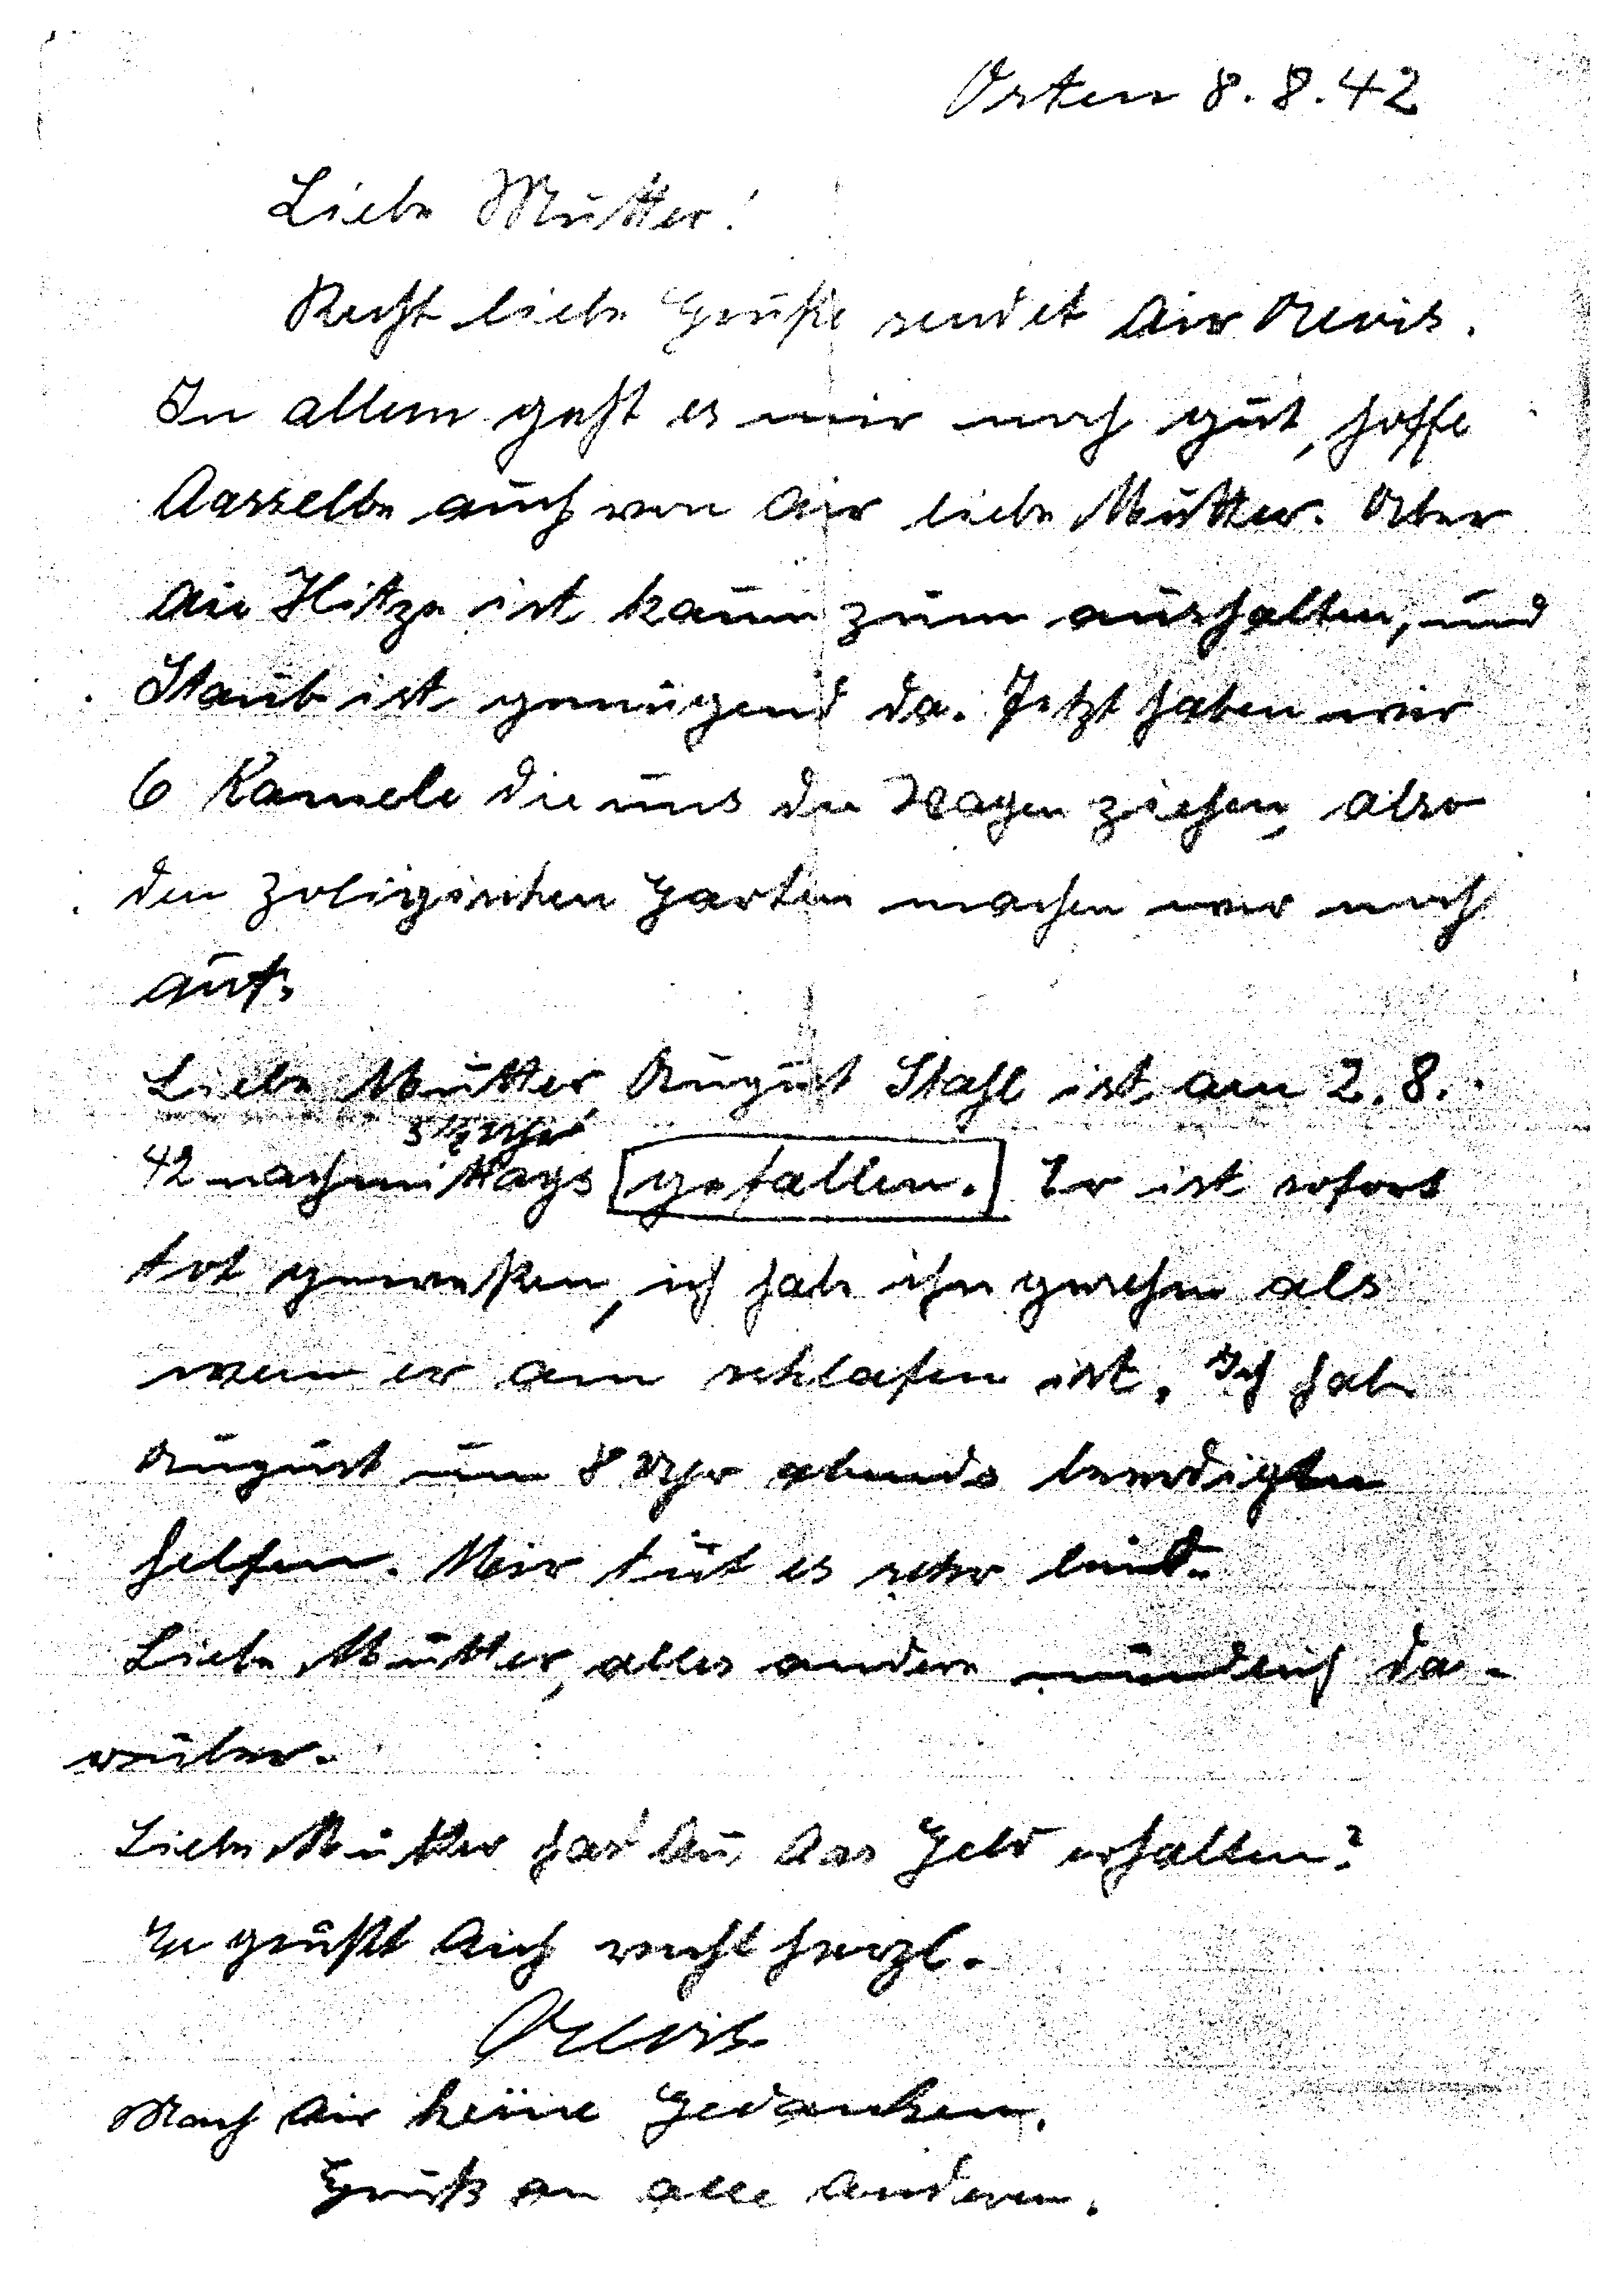 Osten 8.8.42
Liebe Mutter!
Recht liebe Grüße sendet dir Alois.
In allem geht es mir noch gut, hoffe
dasselbe auch von dir liebe Mutter. Aber
die Hitze ist kaum zum aushalten, und
Staub ist genügend da. Jetzt haben wir
6 Kamele die uns die Wagen ziehen, also
den zoligischen Garten machen wir noch
auf.
Liebe Mutter August Stahl ist am 2.8.
5 1/2 Uhr
42 nachmittags gefallen. Er ist sofort
tot geweßen, ich hab ihn gesehn als
wenn er am schlafen ist. Ich hab
August um 8 Uhr abends beerdigen
helfen. Mir tut es sehr leid.
Liebe Mutter, alles andere mündlich da-
rüber.
Liebe Mutter hast du das Geld erhalten?
Es grüßt dich recht herzl.
Alois
Mach dir keine Gedanken.
Gruß an alle anderen.